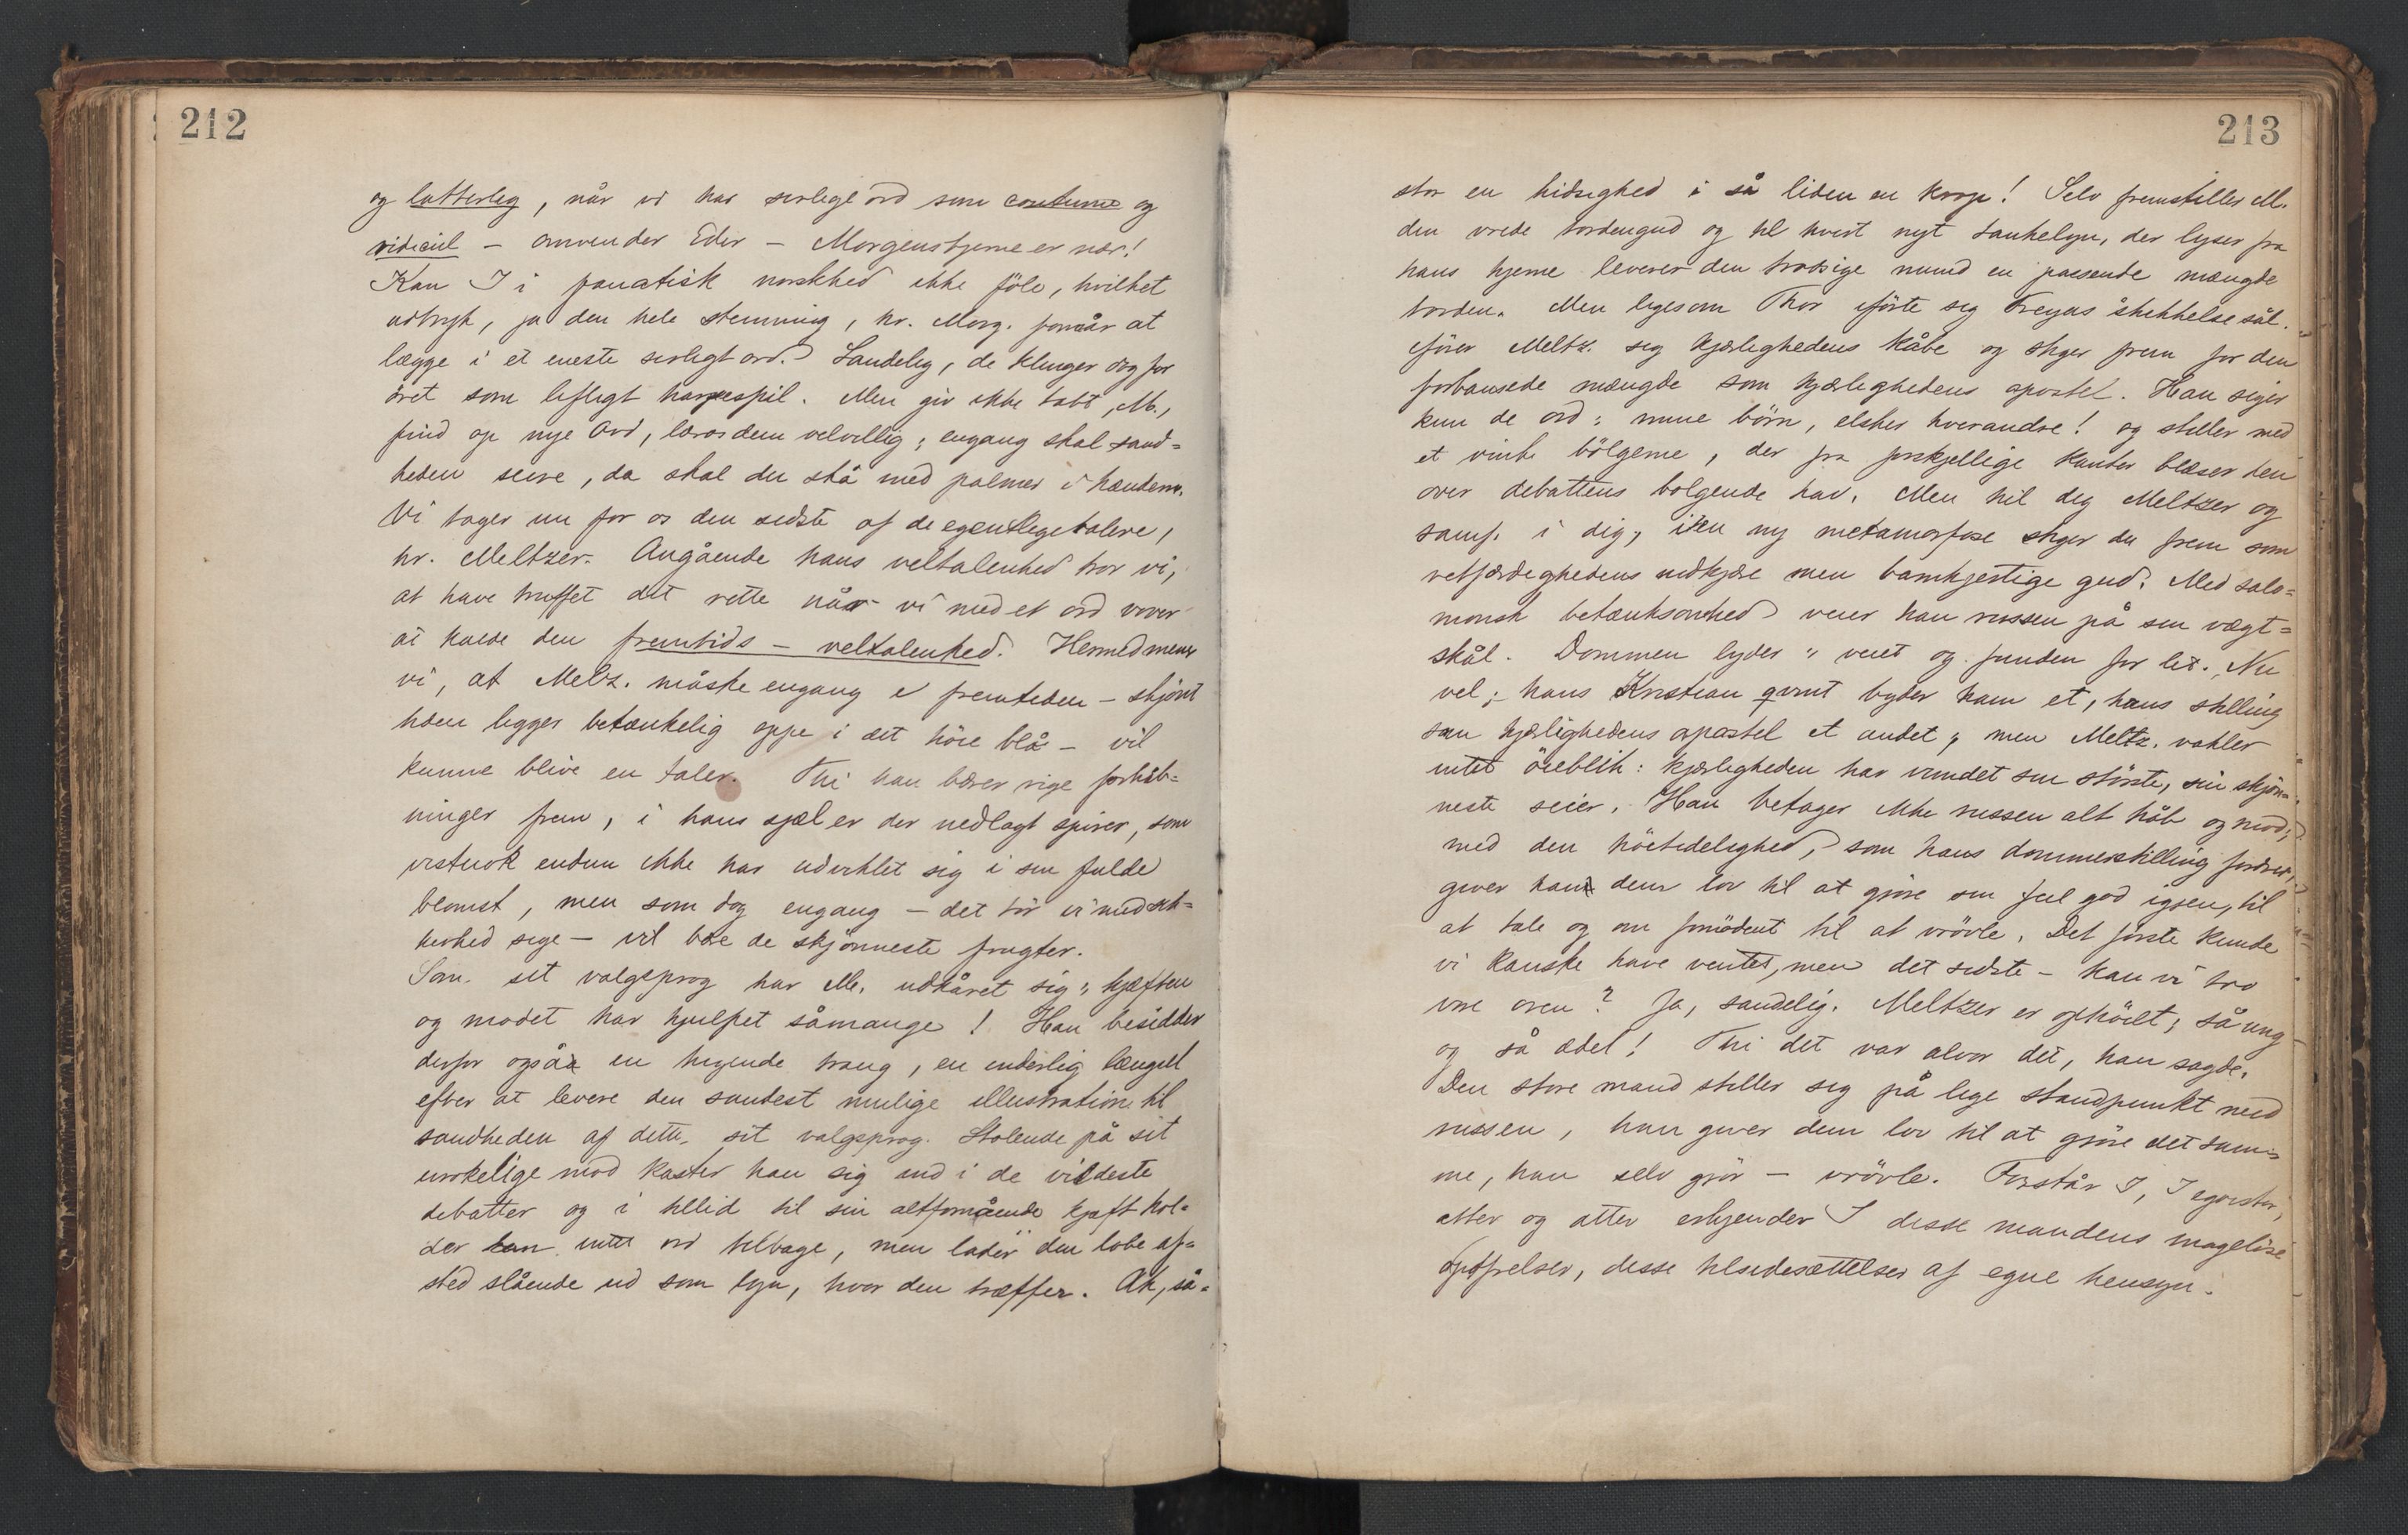 212
og latterlig, når vi har sirlige ord som coutume og
ridicül - omvender Eder - Morgenstjerne er nær!
Kan I i fanatisk norskhed ikke föle, hvilket
udtryk, ja den hele stemning, hr. Morg. formår at
lægge i et eneste sirligt ord. Sandelig, de klinger dog for
öret som lifligt harpespil. Men giv ikke tabt, M.,
find op nye Ord, lær os dem velvillig; engang skal sand=
heden seire, da skal du stå med palmer i hændern.
Vi tager nu for os den sidste af de egentlige talere,
hr. Meltzer. Angående hans veltalenhed tror vi,
at have truffet det rette når vi med et ord vover
at kalde den fremtids - veltalenhed. Hermed mener
vi, at Melz. måske engang i fremtiden - skjönt
hden ligger betænkelig oppe i det höie blå - vil
kunne blive en taler. Thi han bærer rige forhåb=
ninger frem, i hans sjæl er der nedlagt spirer, som
vistnok endnu ikke har udviklet sig i sin fulde
blomst, men som dog engang - det tör vi med sik=
kerhed sige - vil bære de skjönneste frugter.
Som sit valgsprog har M. udkåret sig: kjæften
og modet har hjulpet såmange! Han besidder
derfor også en higende trang, en inderlig længsel
efter at levere den sandest mulige illustration til
sandheden af dette sit valgsprog. Stolende på sit
urokkelige mod kaster han sig ind i de vildeste
debatter og i tillid til sin altformående kjæft hol=
der han intet ord tilbage, men lader den lobe af=
sted slående ud som lyn, hvor den træffer. Ak, så=
213
stor en hidsighed i så liden en krop! Selv fremstiller M.
den vrede tordengud og til hvert nyt tankelyn, der lyser fra
hans hjerne leverer den trodsige mund en passende mængde
torden. Men ligesom Thor iförte sig Freyas skikkelse sål.
iförer Meltz. sig kjærlighedens kåbe og stiger frem for den
forbausede mængde som kjærlighedens apostel. Han siger
kun de ord: mine börn, elsker hverandre! og stiller med
et vink bölgerne, der fra forskjellige kanter blæser hen
over debattens bolgende hav. Men hil dig Meltzer og
samf. i dig, i en ny metamorfose stiger du frem som
retfærdighedens nidkjære men barmhjertige gud. Med salo=
monsk betænksomhed veier han russen på sin vægt=
skål. Dommen lyder: veiet og funden for let. Nu
vel; hans Kristian qvart byder ham et, hans stilling
som kjærlighedens apostel et andet; men Meltz. vakler
intet öieblik: kjærligheden har vundet sin störste, sin skjön=
neste seier. Han betager ikke russen alt håb og mod;
med den höitidelighed, som hans dommerstilling fordrer,
giver han dem lov til at gjöre sin feil god igjen, til
at tale og om fornödent til at vrövle. Det förste kunde
vi kanske have ventet, men det sidste - kan vi tro
vore ören? Ja, sandelig. Meltzer er ophöiet; så ung
og så ædel! Thi det var alvor det, han sagde.
Den store mand stiller sig på lige standpunkt med
russen, han giver dem lov til at gjöre det sam=
me, han selv gjör - vrövle. Forstår I, I egoister,
atter og atter erkjender I disse mandens mageløse
opofrelser, disse tilsidesættelser af egne hensyn.